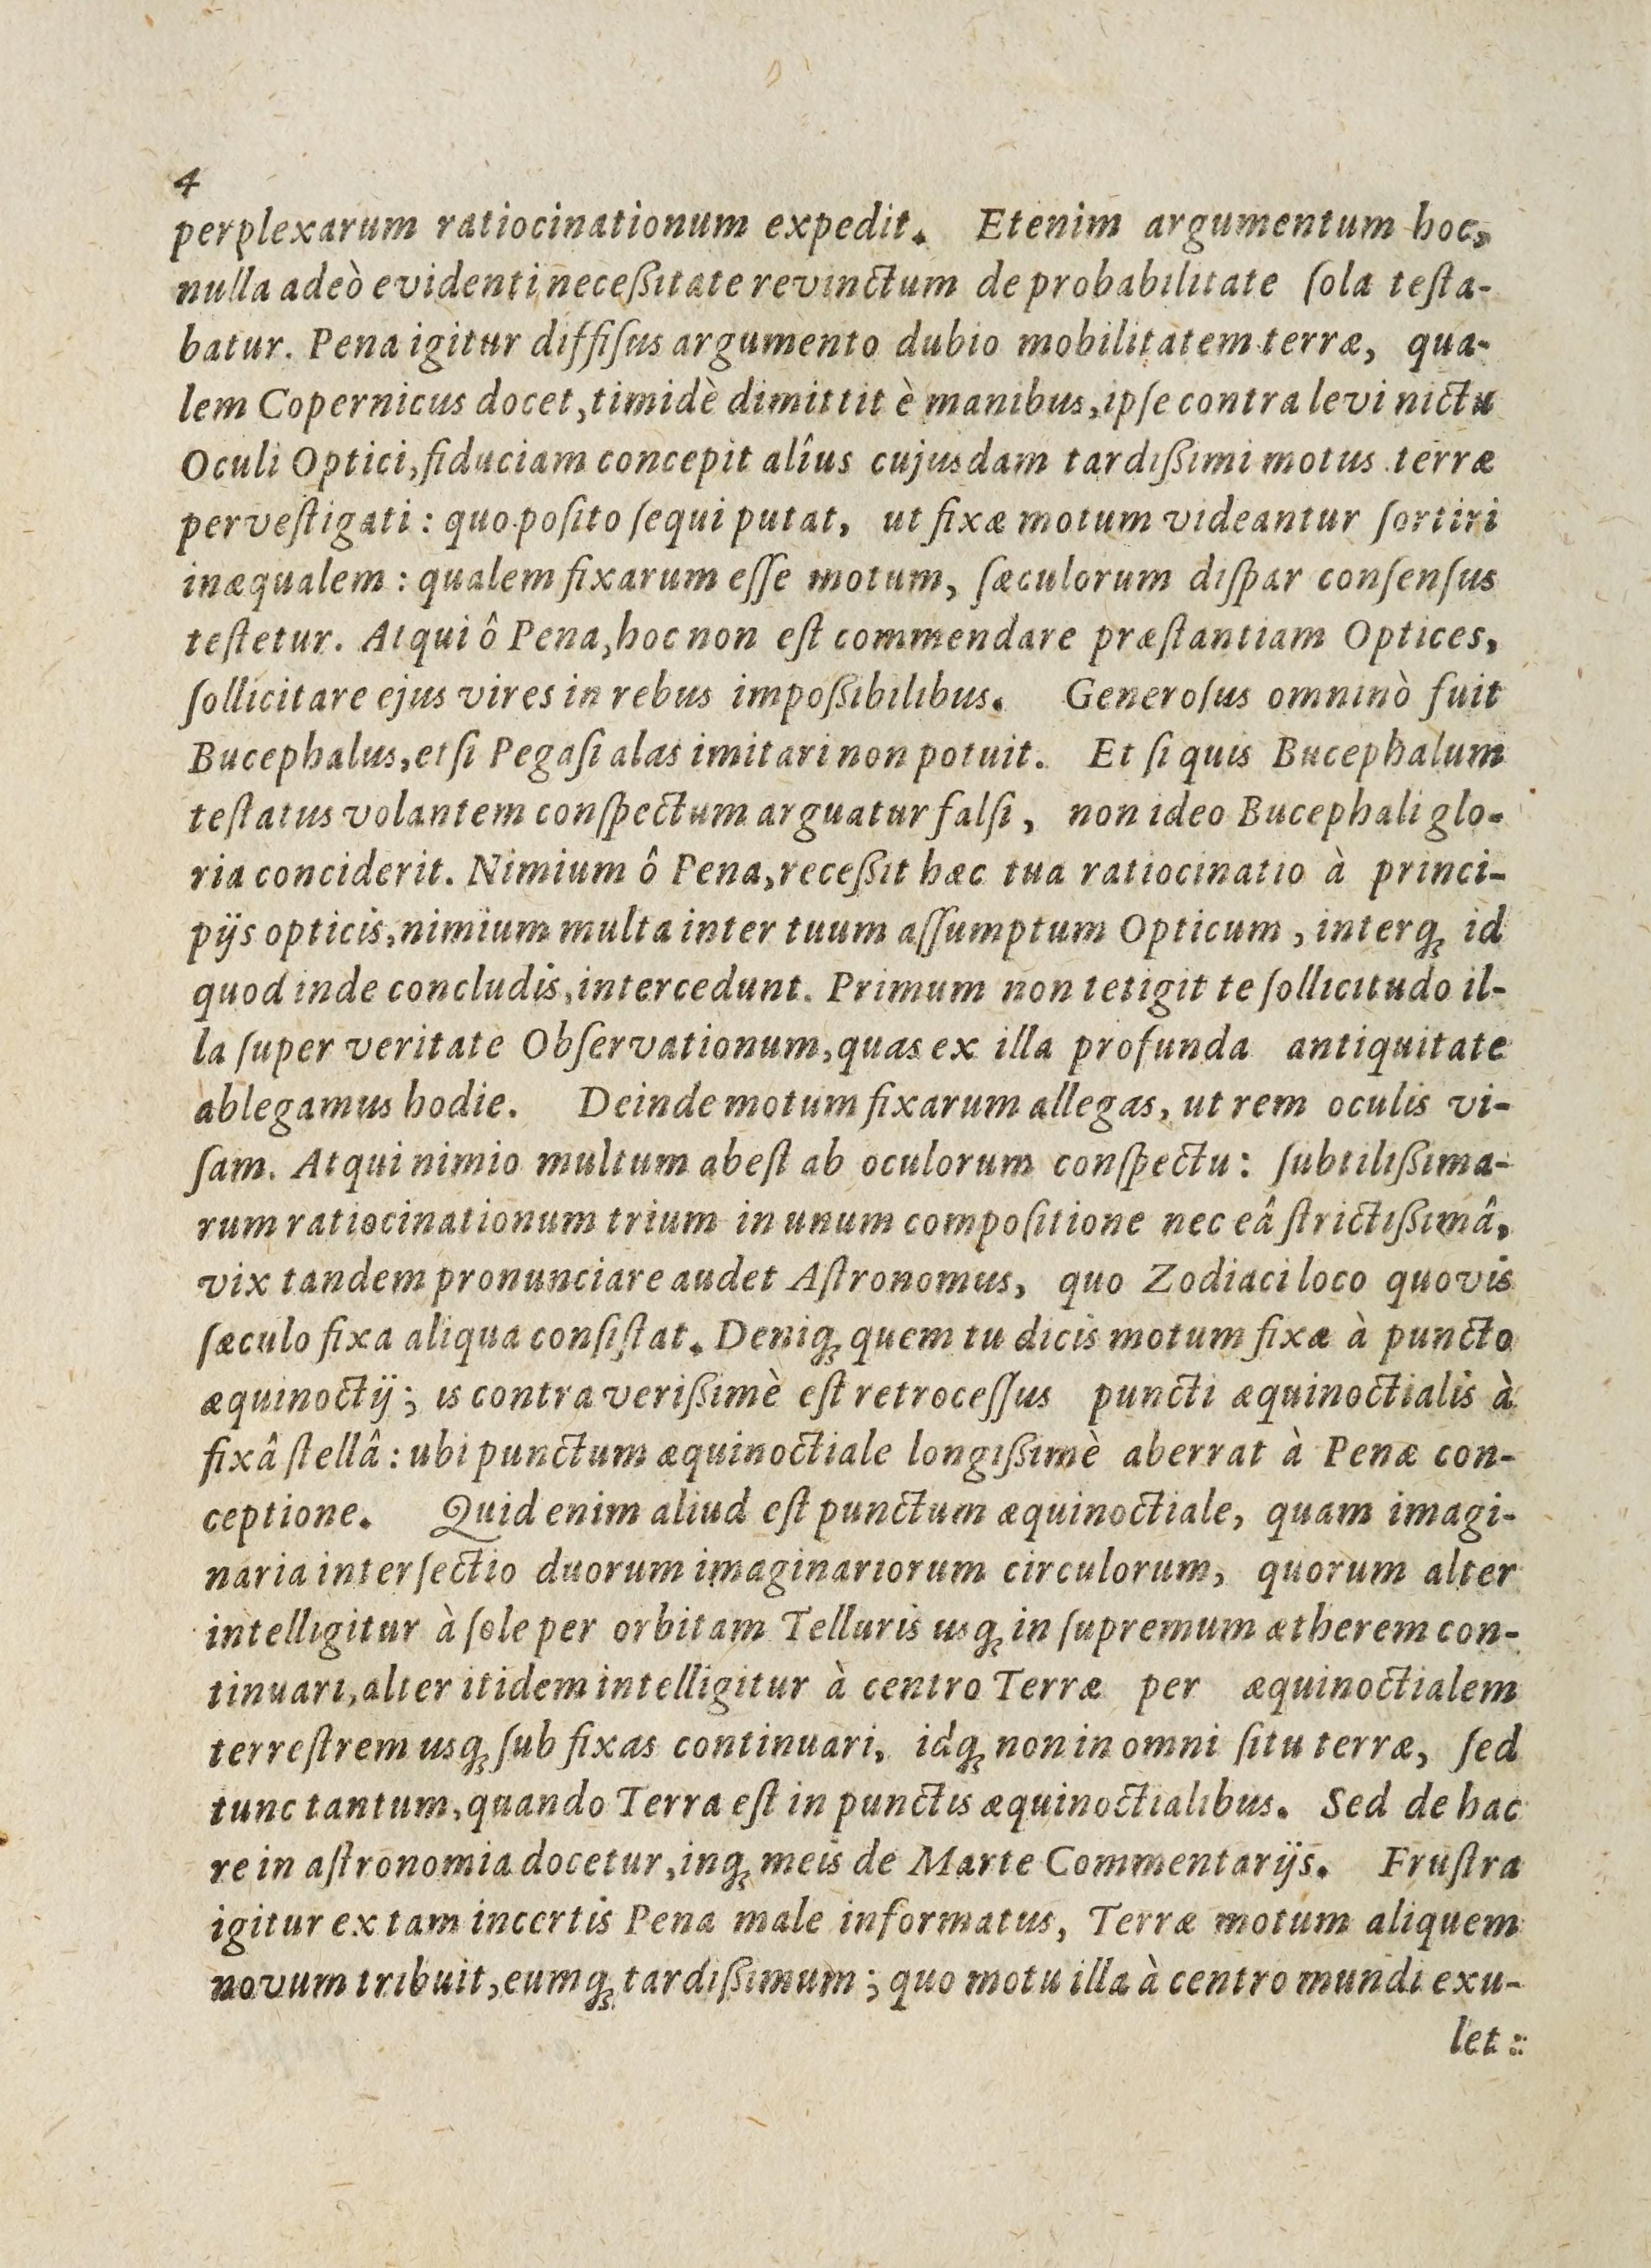 4
perplexarum ratiocinationum expedit. Etenim argumentum hoc,
nulla adeò evidenti neceßitate revinctum de probabilitate ſola teſta-
batur. Pena igitur diffiſus argumento dubio mobilitatem terræ, qua-
lem Copernicus docet, timidè dimittit è manibus, ipſe contra levi nictu
Oculi Optici, fiduciam concepit alîus cujusdam tardißimi motus terræ
perveſtigati: quo poſito ſequi putat, ut fixæ motum videantur ſortiri
inæqualem: qualem fixarum eſſe motum, ſæculorum diſpar conſenſus
teſtetur. Atqui ô Pena, hoc non eſt commendare præſtantiam Optices,
ſollicitare ejus vires in rebus impoßibilibus. Generoſus omninò fuit
Bucephalus, etſi Pegaſi alas imitari non potuit. Et ſi quis Bucephalum
teſtatus volantem conſpectum arguatur falſi, non ideo Bucephali glo-
ria conciderit. Nimium ô Pena, receßit hæc tua ratiocinatio à princi-
pijs opticis, nimium multa inter tuum aſſumptum Opticum, interq́ꝫ id
quod inde concludis, intercedunt. Primum non tetigit te ſollicitudo il-
la ſuper veritate Obſervationum, quas ex illa profunda antiquitate
ablegamus hodie. Deinde motum fixarum allegas, ut rem oculis vi-
ſam. Atqui nimio multum abeſt ab oculorum conſpectu: ſubtilißima-
rum ratiocinationum trium in unum compoſitione nec eâ ſtrictißimâ,
vix tandem pronunciare audet Aſtronomus, quo Zodiaci loco quovis
ſæculo fixa aliqua conſiſtat. Deniq́ꝫ quem tu dicis motum fixæ à puncto
æquinoctij; is contra verißimè eſt retroceſſus puncti æquinoctialis à
fixâ ſtellâ: ubi punctum æquinoctiale longißimè aberrat à Penæ con-
ceptione. Quid enim aliud eſt punctum æquinoctiale, quam imagi-
naria interſectio duorum imaginariorum circulorum, quorum alter
intelligitur à ſole per orbitam Telluris usq́ꝫ in ſupremum ætherem con-
tinuari, alter itidem intelligitur à centro Terræ per æquinoctialem
terreſtrem usq́ꝫ ſub fixas continuari, idq́ꝫ non in omni ſitu terræ, ſed
tunc tantum, quando Terra eſt in punctis æquinoctialibus. Sed de hac
re in aſtronomia docetur, inq́ꝫ meis de Marte Commentarijs. Fruſtra
igitur ex tam incertis Pena male informatus, Terræ motum aliquem
novum tribuit, eumq́ꝫ tardißimum; quo motu illa à centro mundi exu-
let: